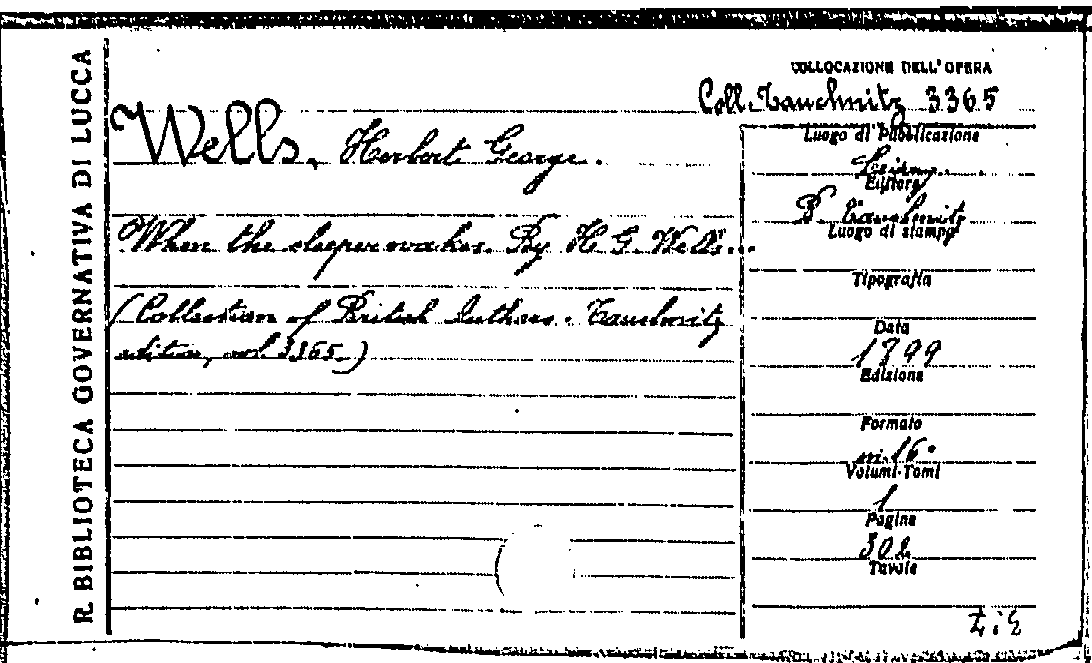 R. BIBLIOTECA GOVERNATIVA DI LUCCA
COLLOCAZIONE DELL'OPERA
Coll. Tauchnitz 3365
Wells, Herbert George.
When the sleeper wakes. By H. G. Wells...
(Collection of British Authors. Tauchnitz
edition, vol. 3365.)
Luogo di Pubblicazione
Editore
B. Tauchnitz
Luogo di stampa
Tipografia
Data
1899
Edizione
Formato
in-16°
Volumi-Tomi
1
Pagine
302
Tavole